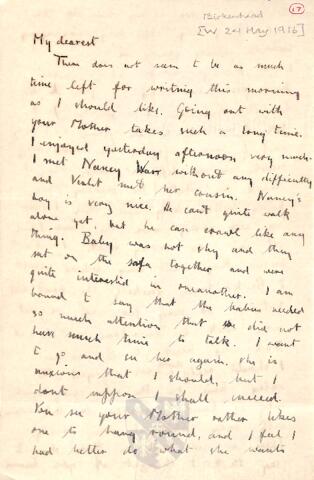 17
Birkenhead
[W 24 May 1916]
My dearest
There does not seem to be as much
time left for writing this morning
as I should like. Going out with
your Mother takes such a long time.
I enjoyed yesterday afternoon very much.
I met Nancy Warr without any difficulty
and Violet met her cousin. Nancy's
boy is very nice. He can't quite walk
alone yet but he can crawl like any
thing. Baby was not shy and they
sat on the sofa together and were
quite interested in oneanother. I am
bound to say that the babies needed
so much attention that we did not
have much time to talk. I want
to go and see her again. She is
anxious that I should, but I
dont suppose I shall succeed.
You see your Mother rather likes
one to hang round, and I feel I
had better do what she wants